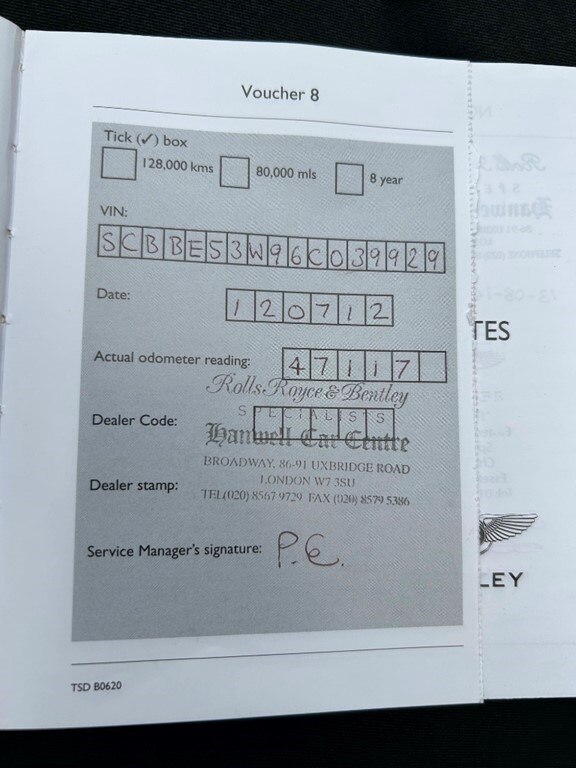 Voucher 8
Tick (✓) box
128,000 kms
80,000 mls
8 year
VIN:
SCBBE53W96C039929
Date:
120712
Actual odometer reading:
47117
Rolls Royce & Bentley
Dealer Code:
SPECIALISTS
Hanwell Car Centre
BROADWAY, 86-91 UXBRIDGE ROAD
LONDON W7 3SU
Dealer stamp:
TEL(020) 8567 9729 FAX (020) 8579 5386
Service Manager's signature:
P.E.
TSD B0620
TES
LEY